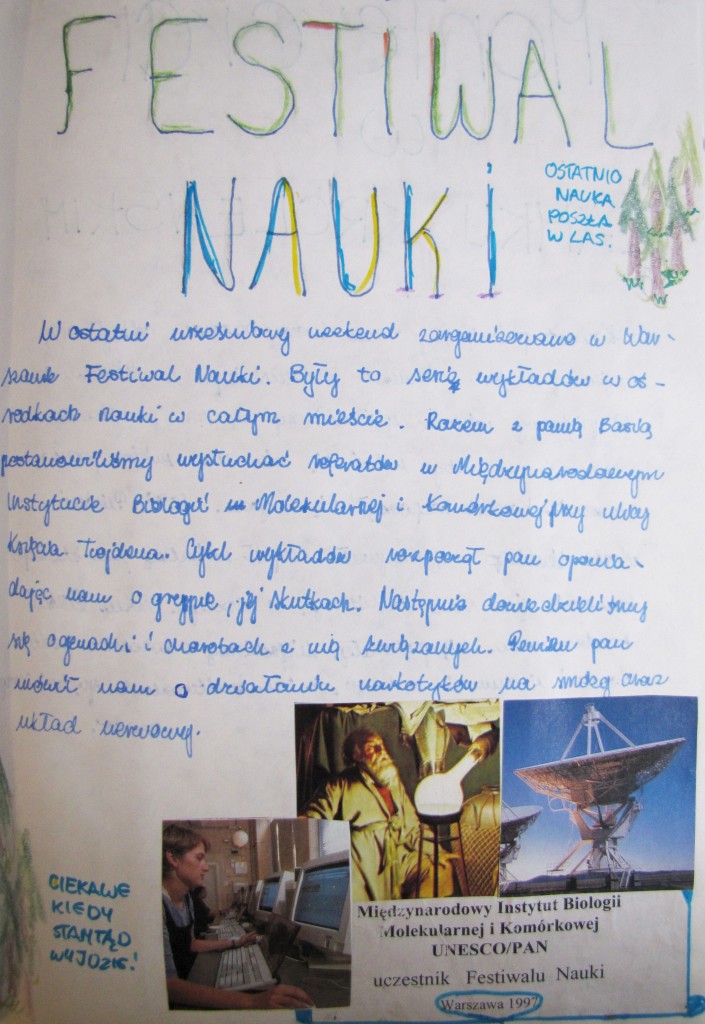 FESTIWAL
NAUKI
OSTATNIO
NAUKA
POSZŁA
W LAS.
W ostatni wrześniowy weekend zorganizowano w War-
szawie Festiwal Nauki. Były to serie wykładów w oś-
rodkach nauki w całym mieście. Razem z panią Basią
postanowiliśmy wysłuchać referatów w Międzynarodowym
Instytucie Biologii Molekularnej i Komórkowej przy ulicy
Księcia Trojdena. Cykl wykładów rozpoczął pan opowia-
dając nam o grypie, jej skutkach. Następnie dowiedzieliśmy
się o genach i chorobach z nią związanych. Pewien pan
mówił nam o działaniu narkotyków na mózg oraz
układ nerwowy.
CIEKAWE
KIEDY
STAMTĄD
WYJDZIE!
Międzynarodowy Instytut Biologii
Molekularnej i Komórkowej
UNESCO/PAN
uczestnik Festiwalu Nauki
Warszawa 1997